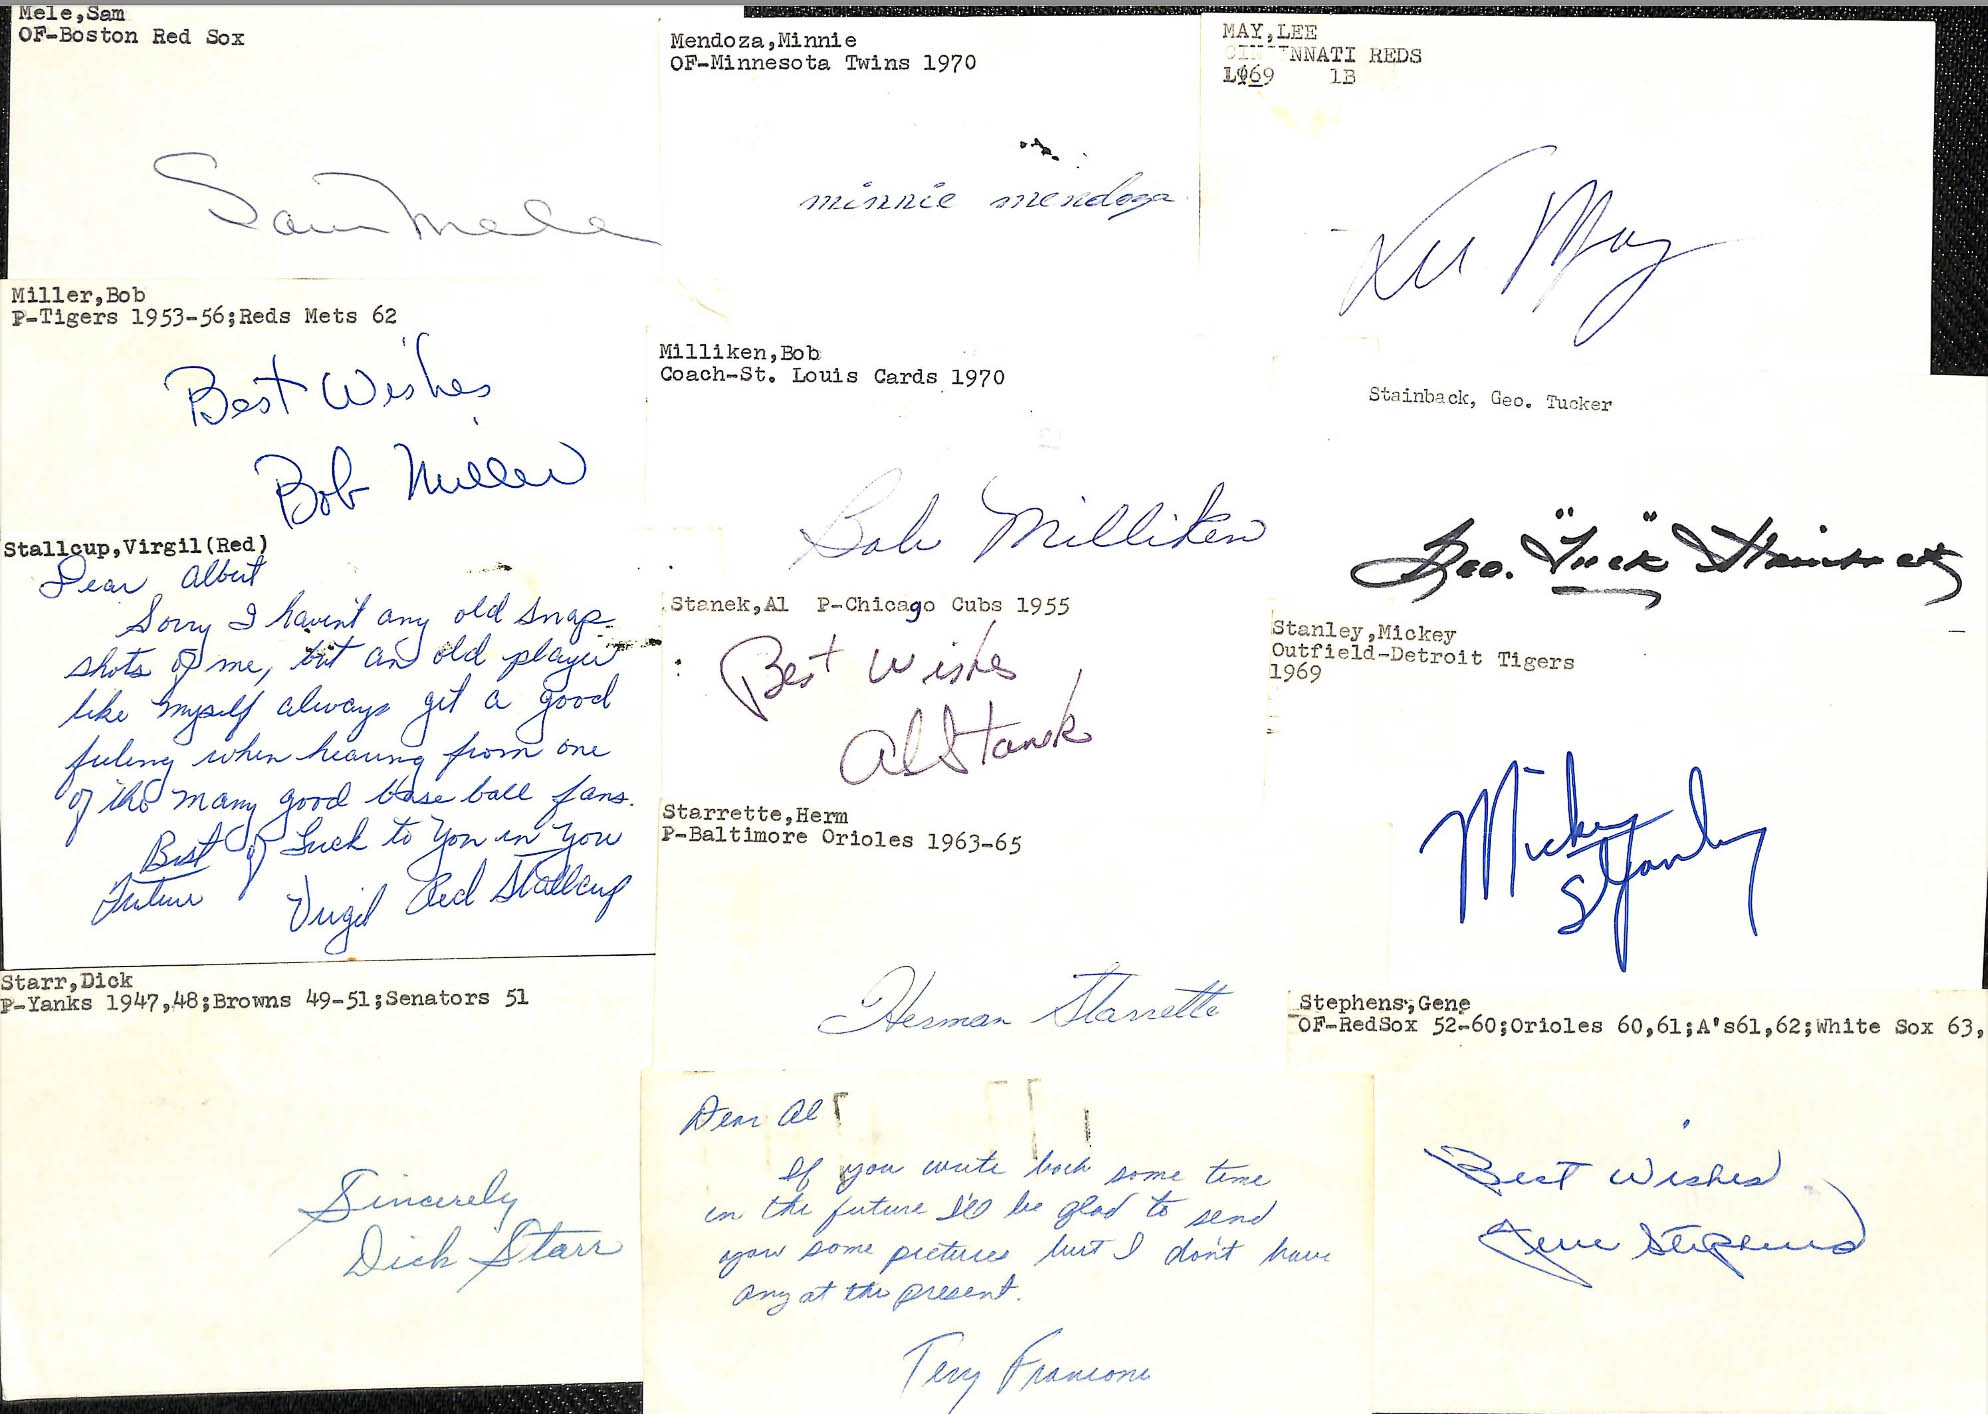 Mele,Sam
OF-Boston Red Sox
Sam Mele
Miller,Bob
P-Tigers 1953-56;Reds Mets 62
Best Wishes
Bob Miller
Stallcup,Virgil(Red)
Dear Albert
Sorry I havent any old snap
shots of me, but an old player
like myself always get a good
feeling when hearing from one
of the many good base ball fans.
Best of Luck to You in You
Future
Virgil Red Stallcup
Starr,Dick
P-Yanks 1947,48;Browns 49-51;Senators 51
Sincerely
Dick Starr
Mendoza,Minnie
OF-Minnesota Twins 1970
minnie mendoza
Milliken,Bob
Coach-St. Louis Cards 1970
Bob Milliken
Stanek,Al P-Chicago Cubs 1955
Best Wishes
Al Stanek
Starrette,Herm
P-Baltimore Orioles 1963-65
Herman Starrette
Dear Al
If you write back some time
in the future I'll be glad to send
you some pictures but I don't have
any at the present.
Terry Francona
MAY,LEE
CINCINNATI REDS
1969 1B
Lee May
Stainback, Geo. Tucker
Geo. "Tuck" Stainback
Stanley,Mickey
Outfield-Detroit Tigers
1969
Mickey
Stanley
Stephens,Gene
OF-RedSox 52-60;Orioles 60,61;A's61,62;White Sox 63,
Best Wishes
Gene Stephens